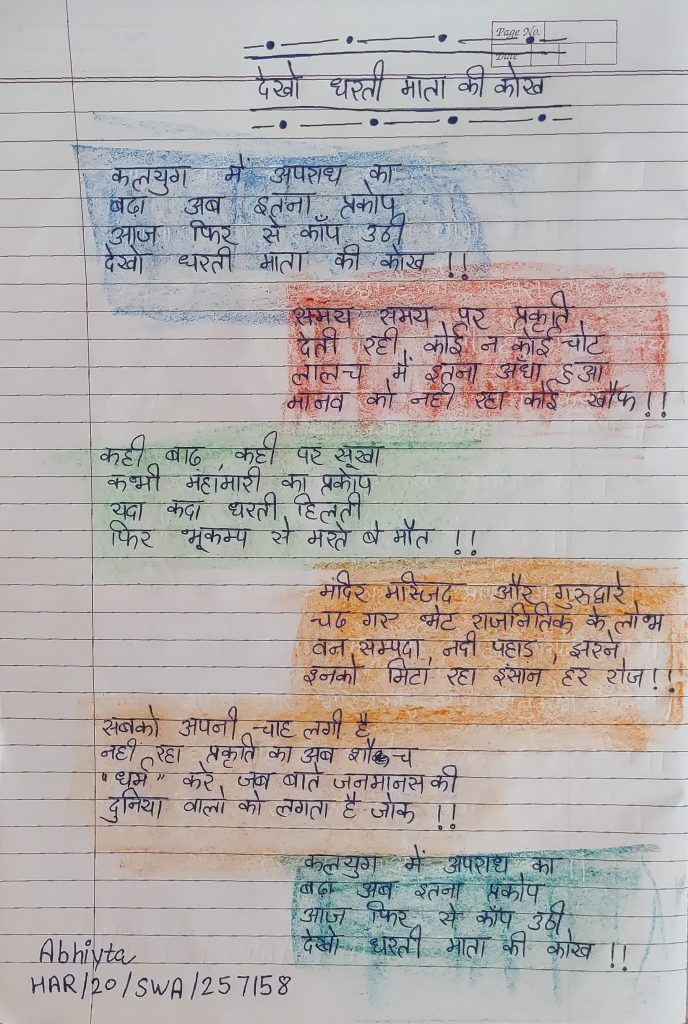 Page No.
Date
देखो धरती माता की कोख
कलयुग में अपराध का
बढा अब इतना प्रकोप
आज फिर से काँप उठी
देखो धरती माता की कोख !!
समय समय पर प्रकृति
देती रही कोई न कोई चोट
लालच में इतना अंधा हुआ
मानव को नही रहा कोई खौफ !!
कही बाढ, कही पर सूखा
कभी महांमारी का प्रकोप
यदा कदा धरती हिलती
फिर भूकम्प से मरते बे मौत !!
मंदिर मस्जिद और गुरुद्वारे
चढ गए भेट राजनितिक के लोभ
वन सम्पदा, नदी पहाड़, झरने
इनको मिटा रहा इंसान हर रोज !!
सबको अपनी चाह लगी है
नहीं रहा प्रकृति का अब शौच
"धर्म" करे जब बाते जनमानस की
दुनिया वालो को लगता है जोक !!
कलयुग में अपराध का
बढा अब इतना प्रकोप
आज फिर से काँप उठी
देखो धरती माता की कोख !!
Abhivta
HAR/20/SWA/257158